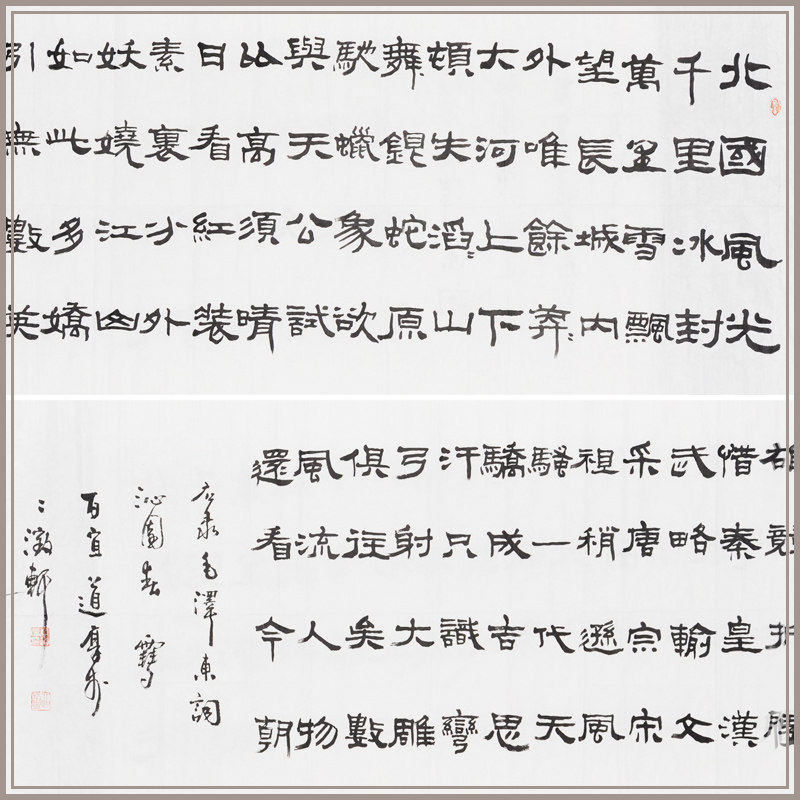 北國風光
千里冰封
萬里雪飄
望長城内
外唯餘莽〻
大河上下
頓失滔〻山
舞銀蛇原
馳蠟象欲
與天公試
比高須晴
日看紅装
素裏分外
妖嬈江山
如此多嬌
引無數英
雄競折腰
惜秦皇漢
武略輸文
采唐宗宋
祖稍遜風
騷一代天
驕成吉思
汗只識彎
弓射大雕
俱往矣數
風流人物
還看今朝
右录毛澤东詞
沁園春 雪
道厚书
軒